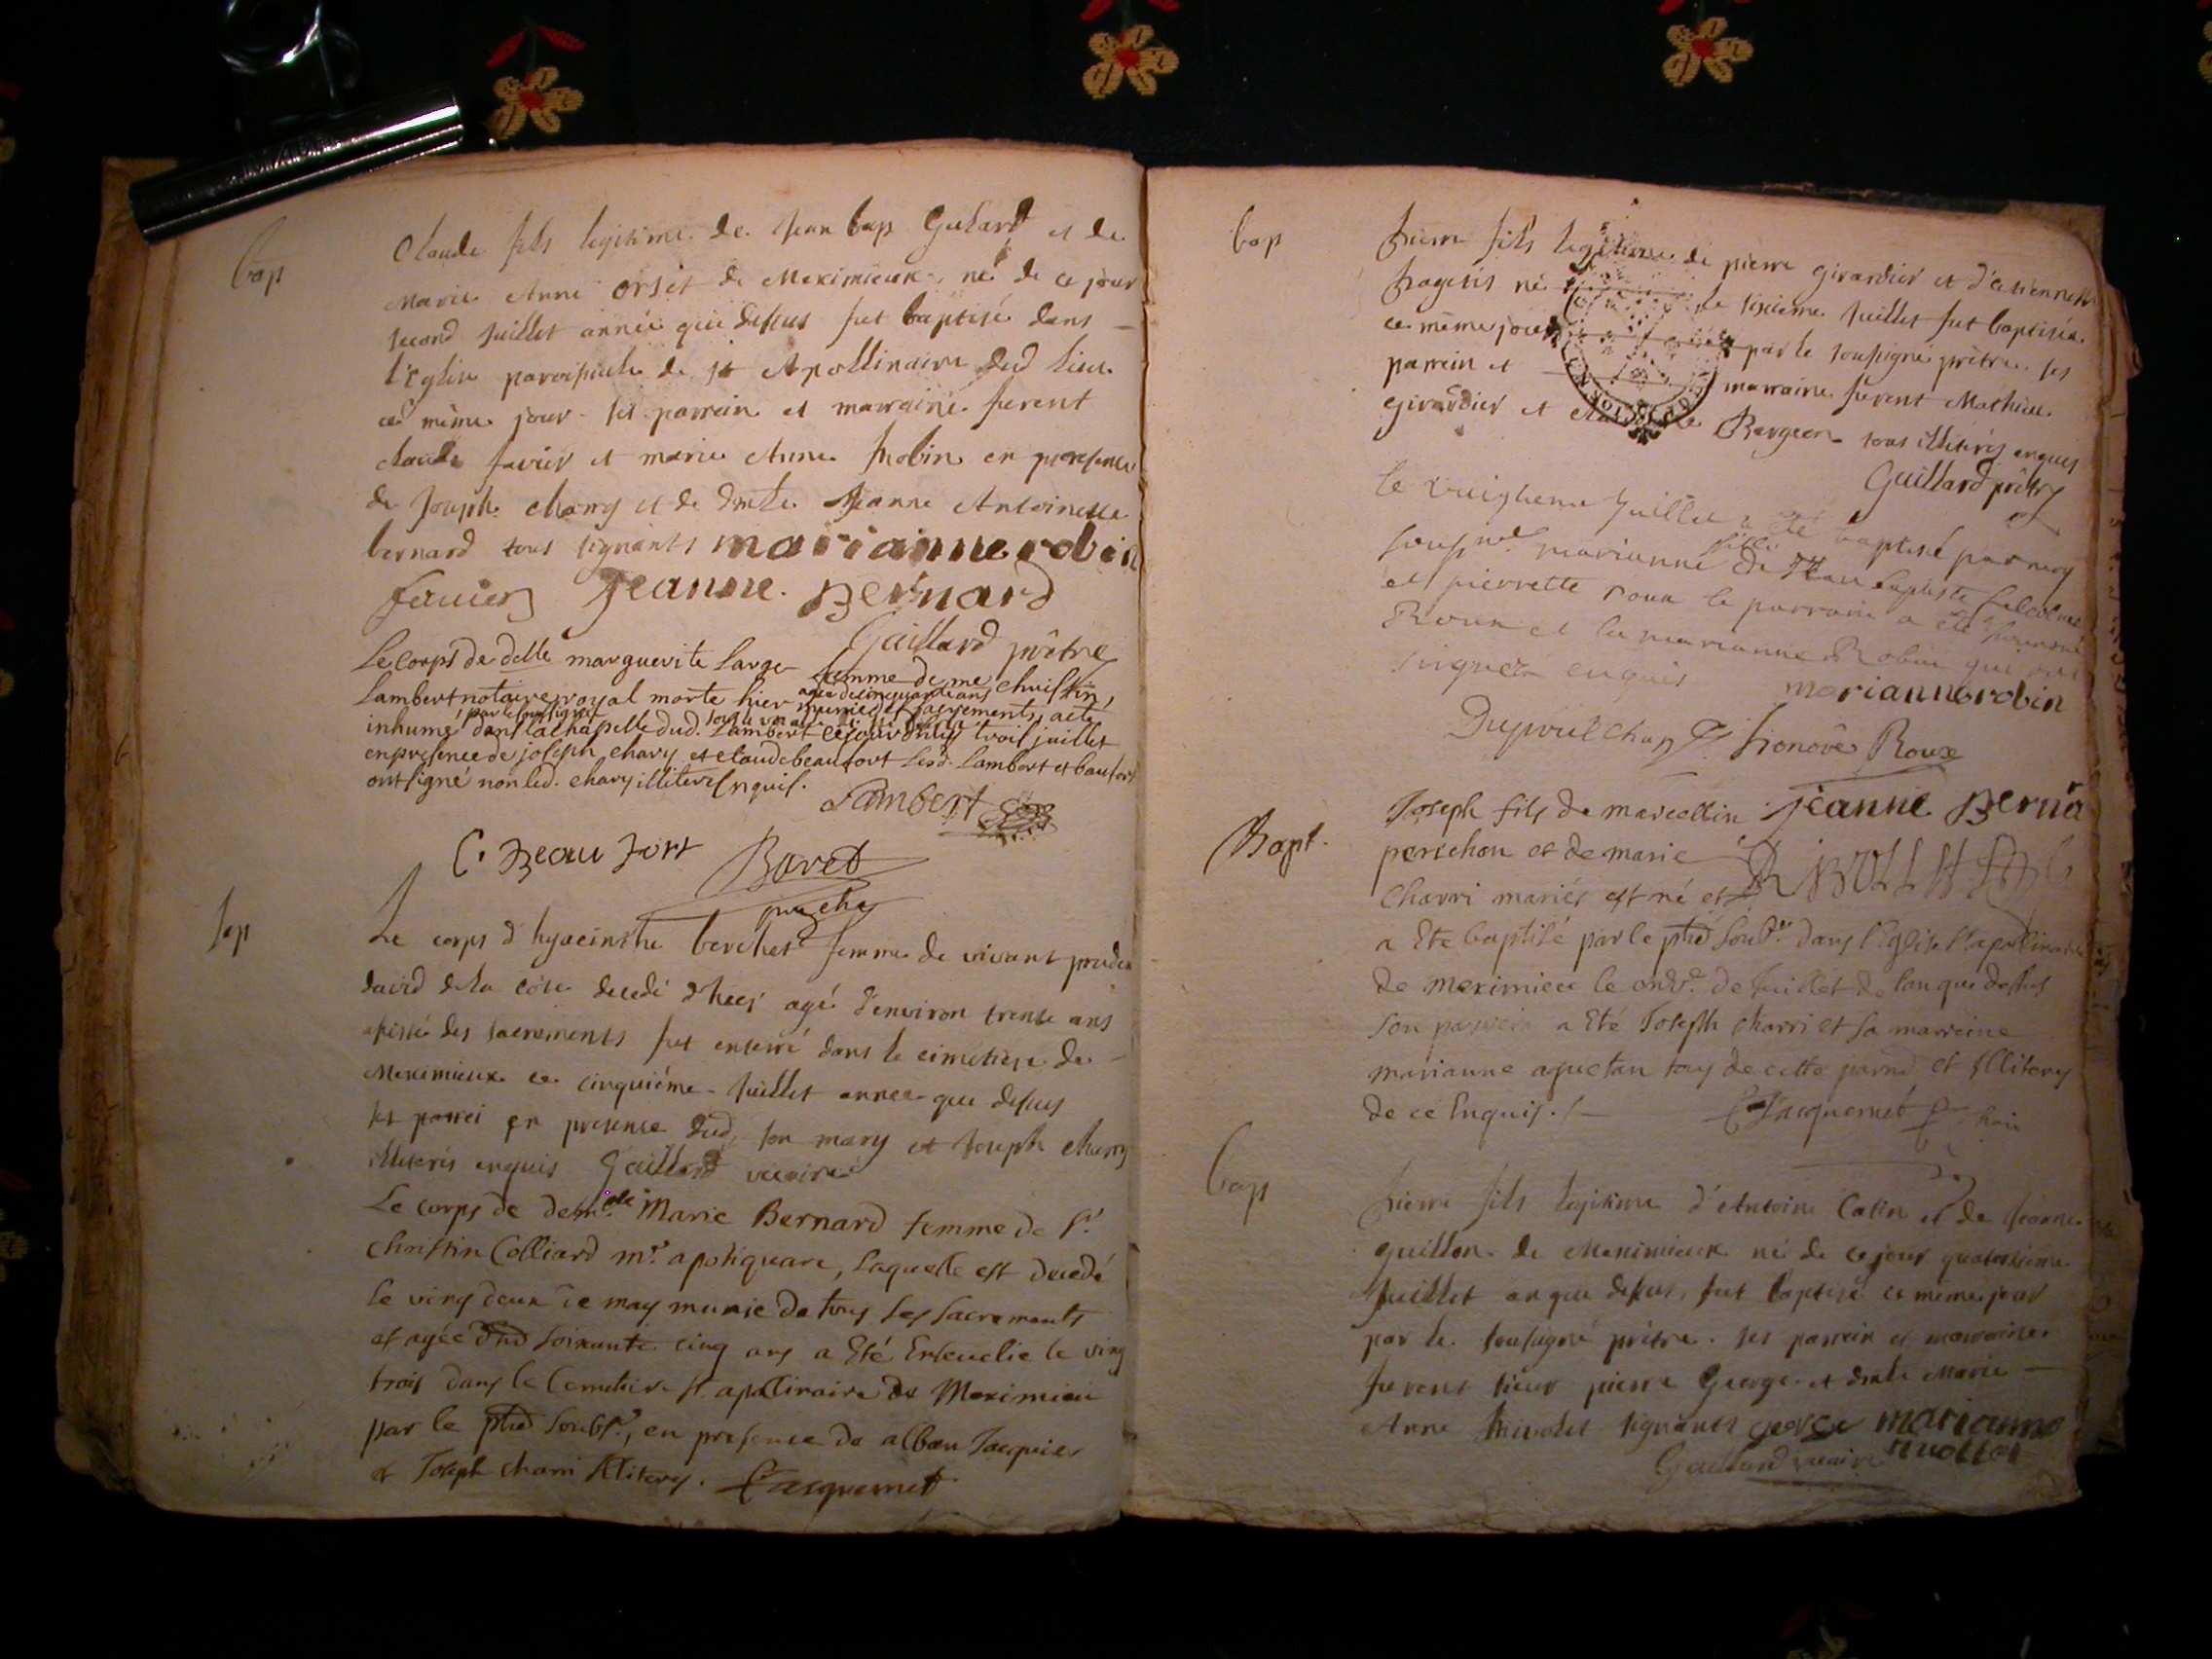 bap
Claude fils legitime de Jean bap Guhard et de
Marie Anne orset de Meximieux né de ce jour
second juillet année que dessus fut baptisé dans
l'Eglise paroissiale de st Apollinaire dud lieu
ce même jour ses parrein et marraine furent
claude favier et marie Anne Robin en presence
de Joseph charry et de dmlle Jeanne Antoinette
bernard tous signants marianne robin
favier Jeanne Bernard
Gaillard prêtre
Le corps de delle marguerite large femme de me christin
Lambert notaire royal morte hier agée de cinquante ans munies des sacrements, a eté
inhumé par le soussigné dans la chapelle dud. Lambert ce jourdhuy trois juillet
en presence de joseph chary et claude beaufort lesd. Lambert et baufort
ont signé non led. chary illiteré enquis.
Lambert
C. Beaufort Bovet
Sep
Le corps d'hyacinthe berchet femme de vivant
david de la côte decedé d'hier agé d'environ trente ans
des sacrements fut enterré dans le cimetiere de
Meximieux ce cinquième juillet annee que dessus
en presence dud son mary et Joseph charry
illiterés enquis Gaillard vicaire
Le corps de demlle Marie Bernard femme de Sr
christin Colliard mr apotiquare, laquelle est decedé
le vingt deux de may munie de tous les sacrements
et agée soixante cinq ans a Eté Enseuelie le ving
trois dans le Cemetiere St apolinaire de Meximieu
par le soubs, en presence de alban Jacquier
et Joseph charri illiterez. Jacquemet
bap
pierre fils legitime de pierre girardier et d'etiennette
né le sixieme juillet fut baptisé
ce même jour par le soussigné prêtre. ses
parrein et marraine furent Mathieu
girardier et Bergeon tous illiterés enquis
Gaillard prêtre
Le huictieme Juillet a eté baptisé par moy
sousné marianne fille de Jean baptiste
et pierrette roux le parrain a eté honnoré
Roux et la marianne Robin qui ont
signez enquis marianne robin
honoré Roux
Bapt.
Joseph fils de marcellin Jeanne Berna
perichon et de marie
Charri mariés est né et
a Eté baptisé par le dans l'Eglise St apollinaire
de meximieu le onze de Juillet de l'an que dessus
son parrein a Eté Joseph charri et sa marreine
marianne tous de cette et illiterez
de ce Enquis. Jacquemet
bap
pierre fils legitime d'Antoine Catin et de Jeanne
guillon de Meximieux né de ce jour quatorzieme
Juillet an que dessus, fut baptisé ce même jour
par le soussigné prêtre. ses parrein et marraine
furent sieur pierre George et dmlle Marie
Anne signants george marianne
Gaillard vicaire